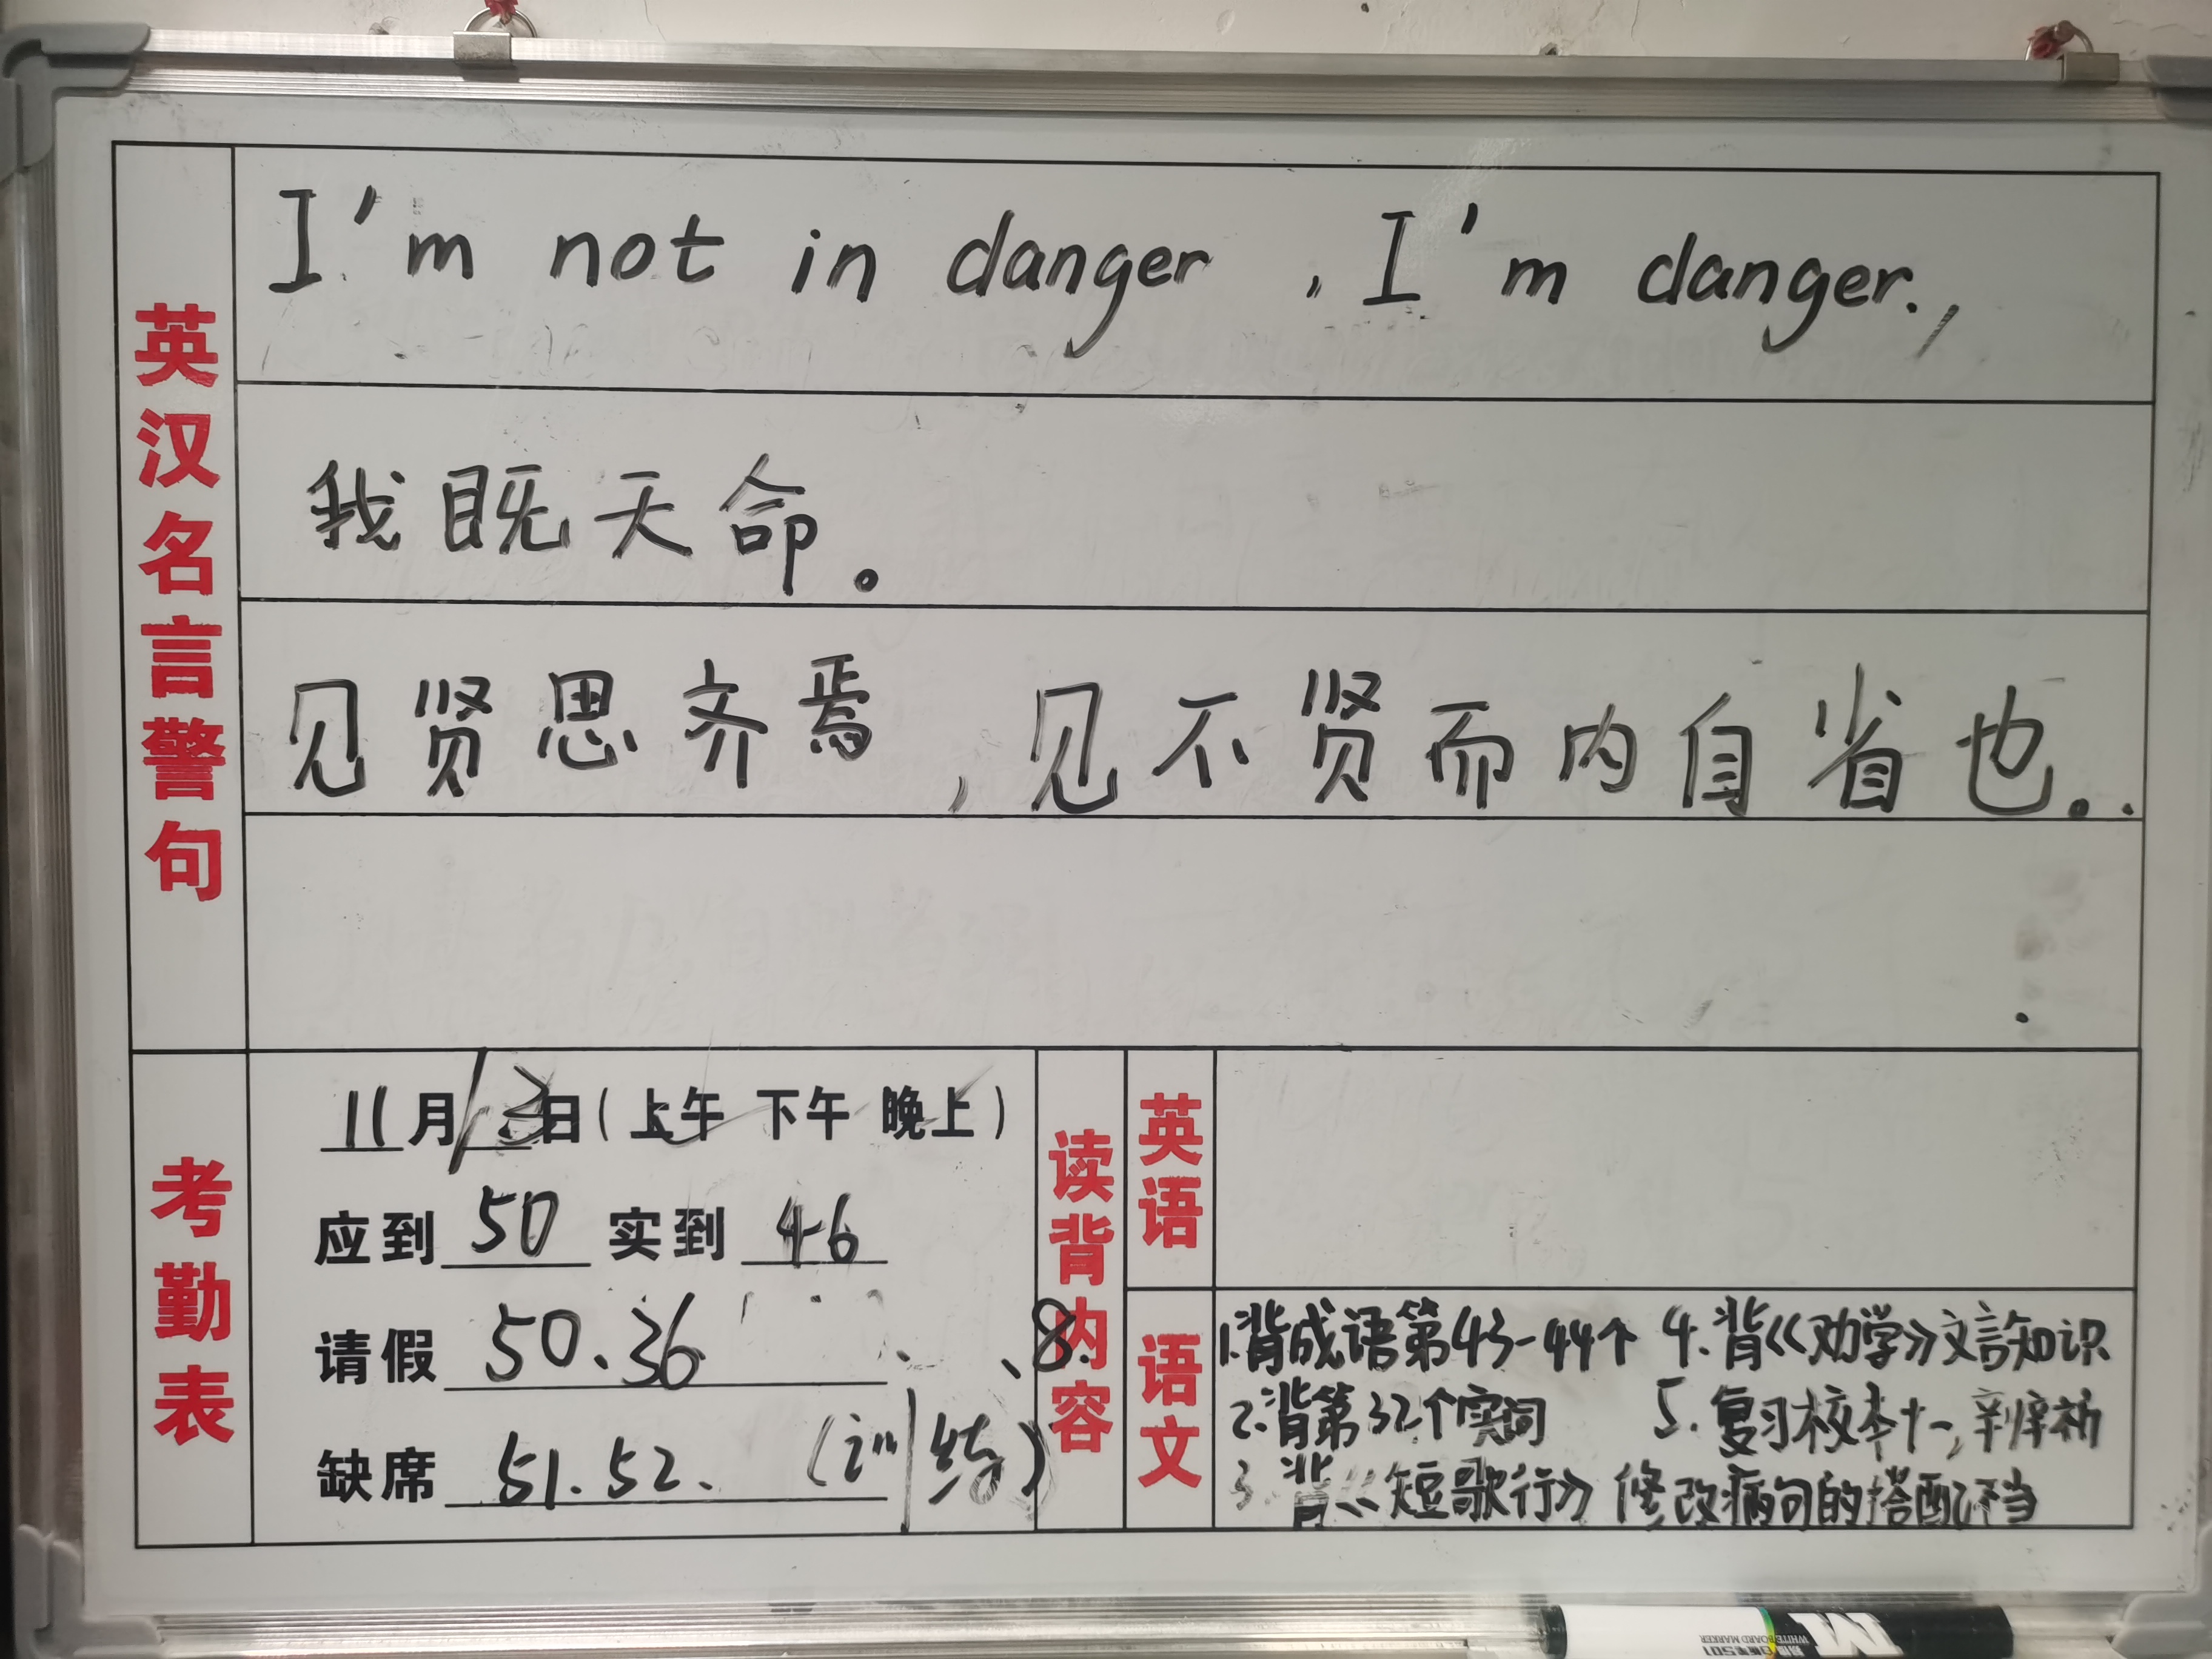 英汉名言警句
I'm not in danger , I'm danger.,
我既天命。
见贤思齐焉，见不贤而内自省也。.
考勤表
11月13日(上午 下午 晚上)
应到 50 实到 46
请假 50、36 、8.
缺席 51. 52. (训练)
读背内容
英语
语文
1.背成语第43-44个 4.背《劝学》文言知识
2.背第32个实词 5.复习校本十一,辨析
3.背《短歌行》 修改病句的搭配不当
WHITEBOARD MARKER